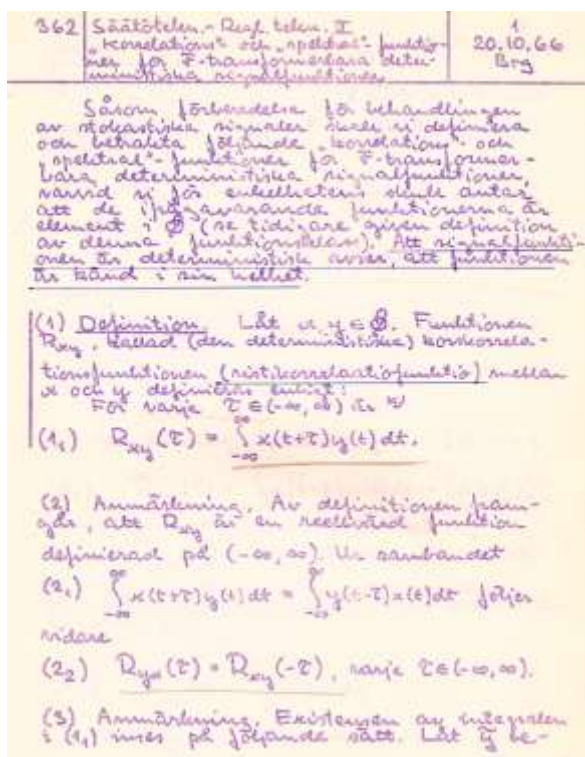 362 Säätötekn.-Regl.tekn. II 1
"Korrelations" och "spektral"-funktio- 20.10.66
ner för F-transformerbara deter- Brg
ministiska signalfunktioner
Såsom förberedelse för behandlingen
av stokastiska signaler skall vi definiera
och betrakta följande "korrelations"- och
"spektral"-funktioner för F-transformer-
bara deterministiska signalfunktioner,
varvid vi för enkelhetens skull antar
att de ifrågavarande funktionerna är
element i (se tidigare given definition
av denna funktionsklass). Att signalfunkti-
onen är deterministisk avser, att funktionen
är känd i sin helhet.
(1) Definition. Låt x, y ∈ . Funktionen
R_xy, kallad (den deterministiska) korskorrela-
tionsfunktionen (ristikorrelaatiofunktio) mellan
x och y definieras enligt:
För varje τ ∈ (-∞, ∞) är
(1₁) R_xy(τ) = ∫_{-∞}^{∞} x(t+τ)y(t)dt.
(2) Anmärkning. Av definitionen fram-
går, att R_xy är en reellvärd funktion
definierad på (-∞, ∞). Ur sambandet
(2₁) ∫_{-∞}^{∞} x(t+τ)y(t)dt = ∫_{-∞}^{∞} y(t-τ)x(t)dt följer
vidare
(2₂) R_yx(τ) = R_xy(-τ), varje τ ∈ (-∞, ∞).
(3) Anmärkning. Existensen av integralen
i (1₁) inses på följande sätt. Låt be-